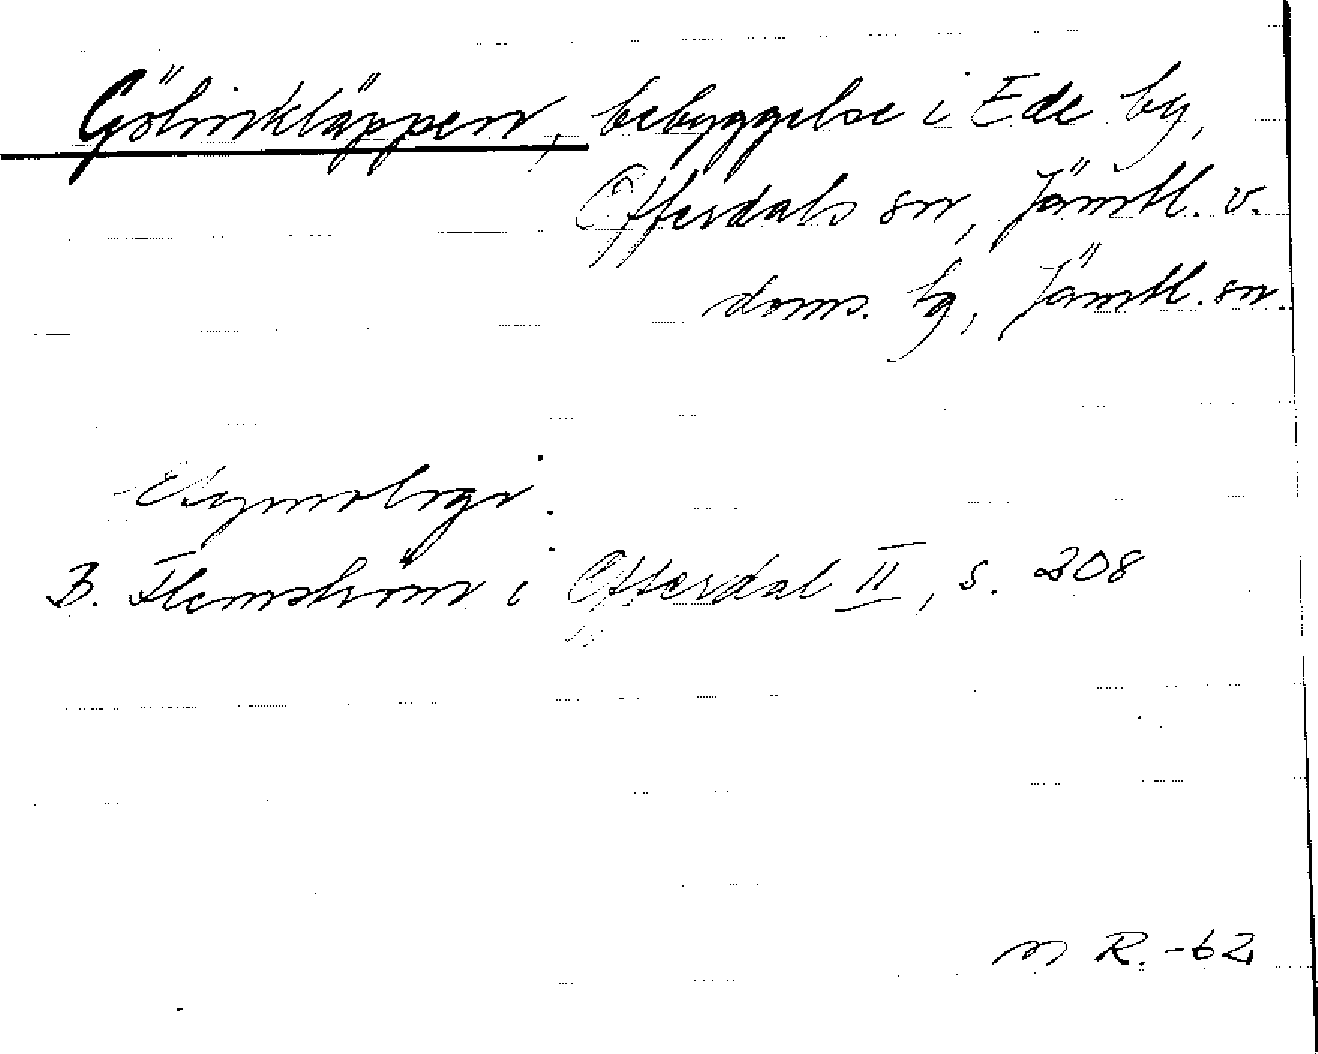 Gölinkläppen, bebyggelse i Ede by,
Offerdals sn, Jämtl. v.
doms. hd, Jämtl. sn.
Etymologi:
B. Flemström i Offerdal II, s. 208
R. -62